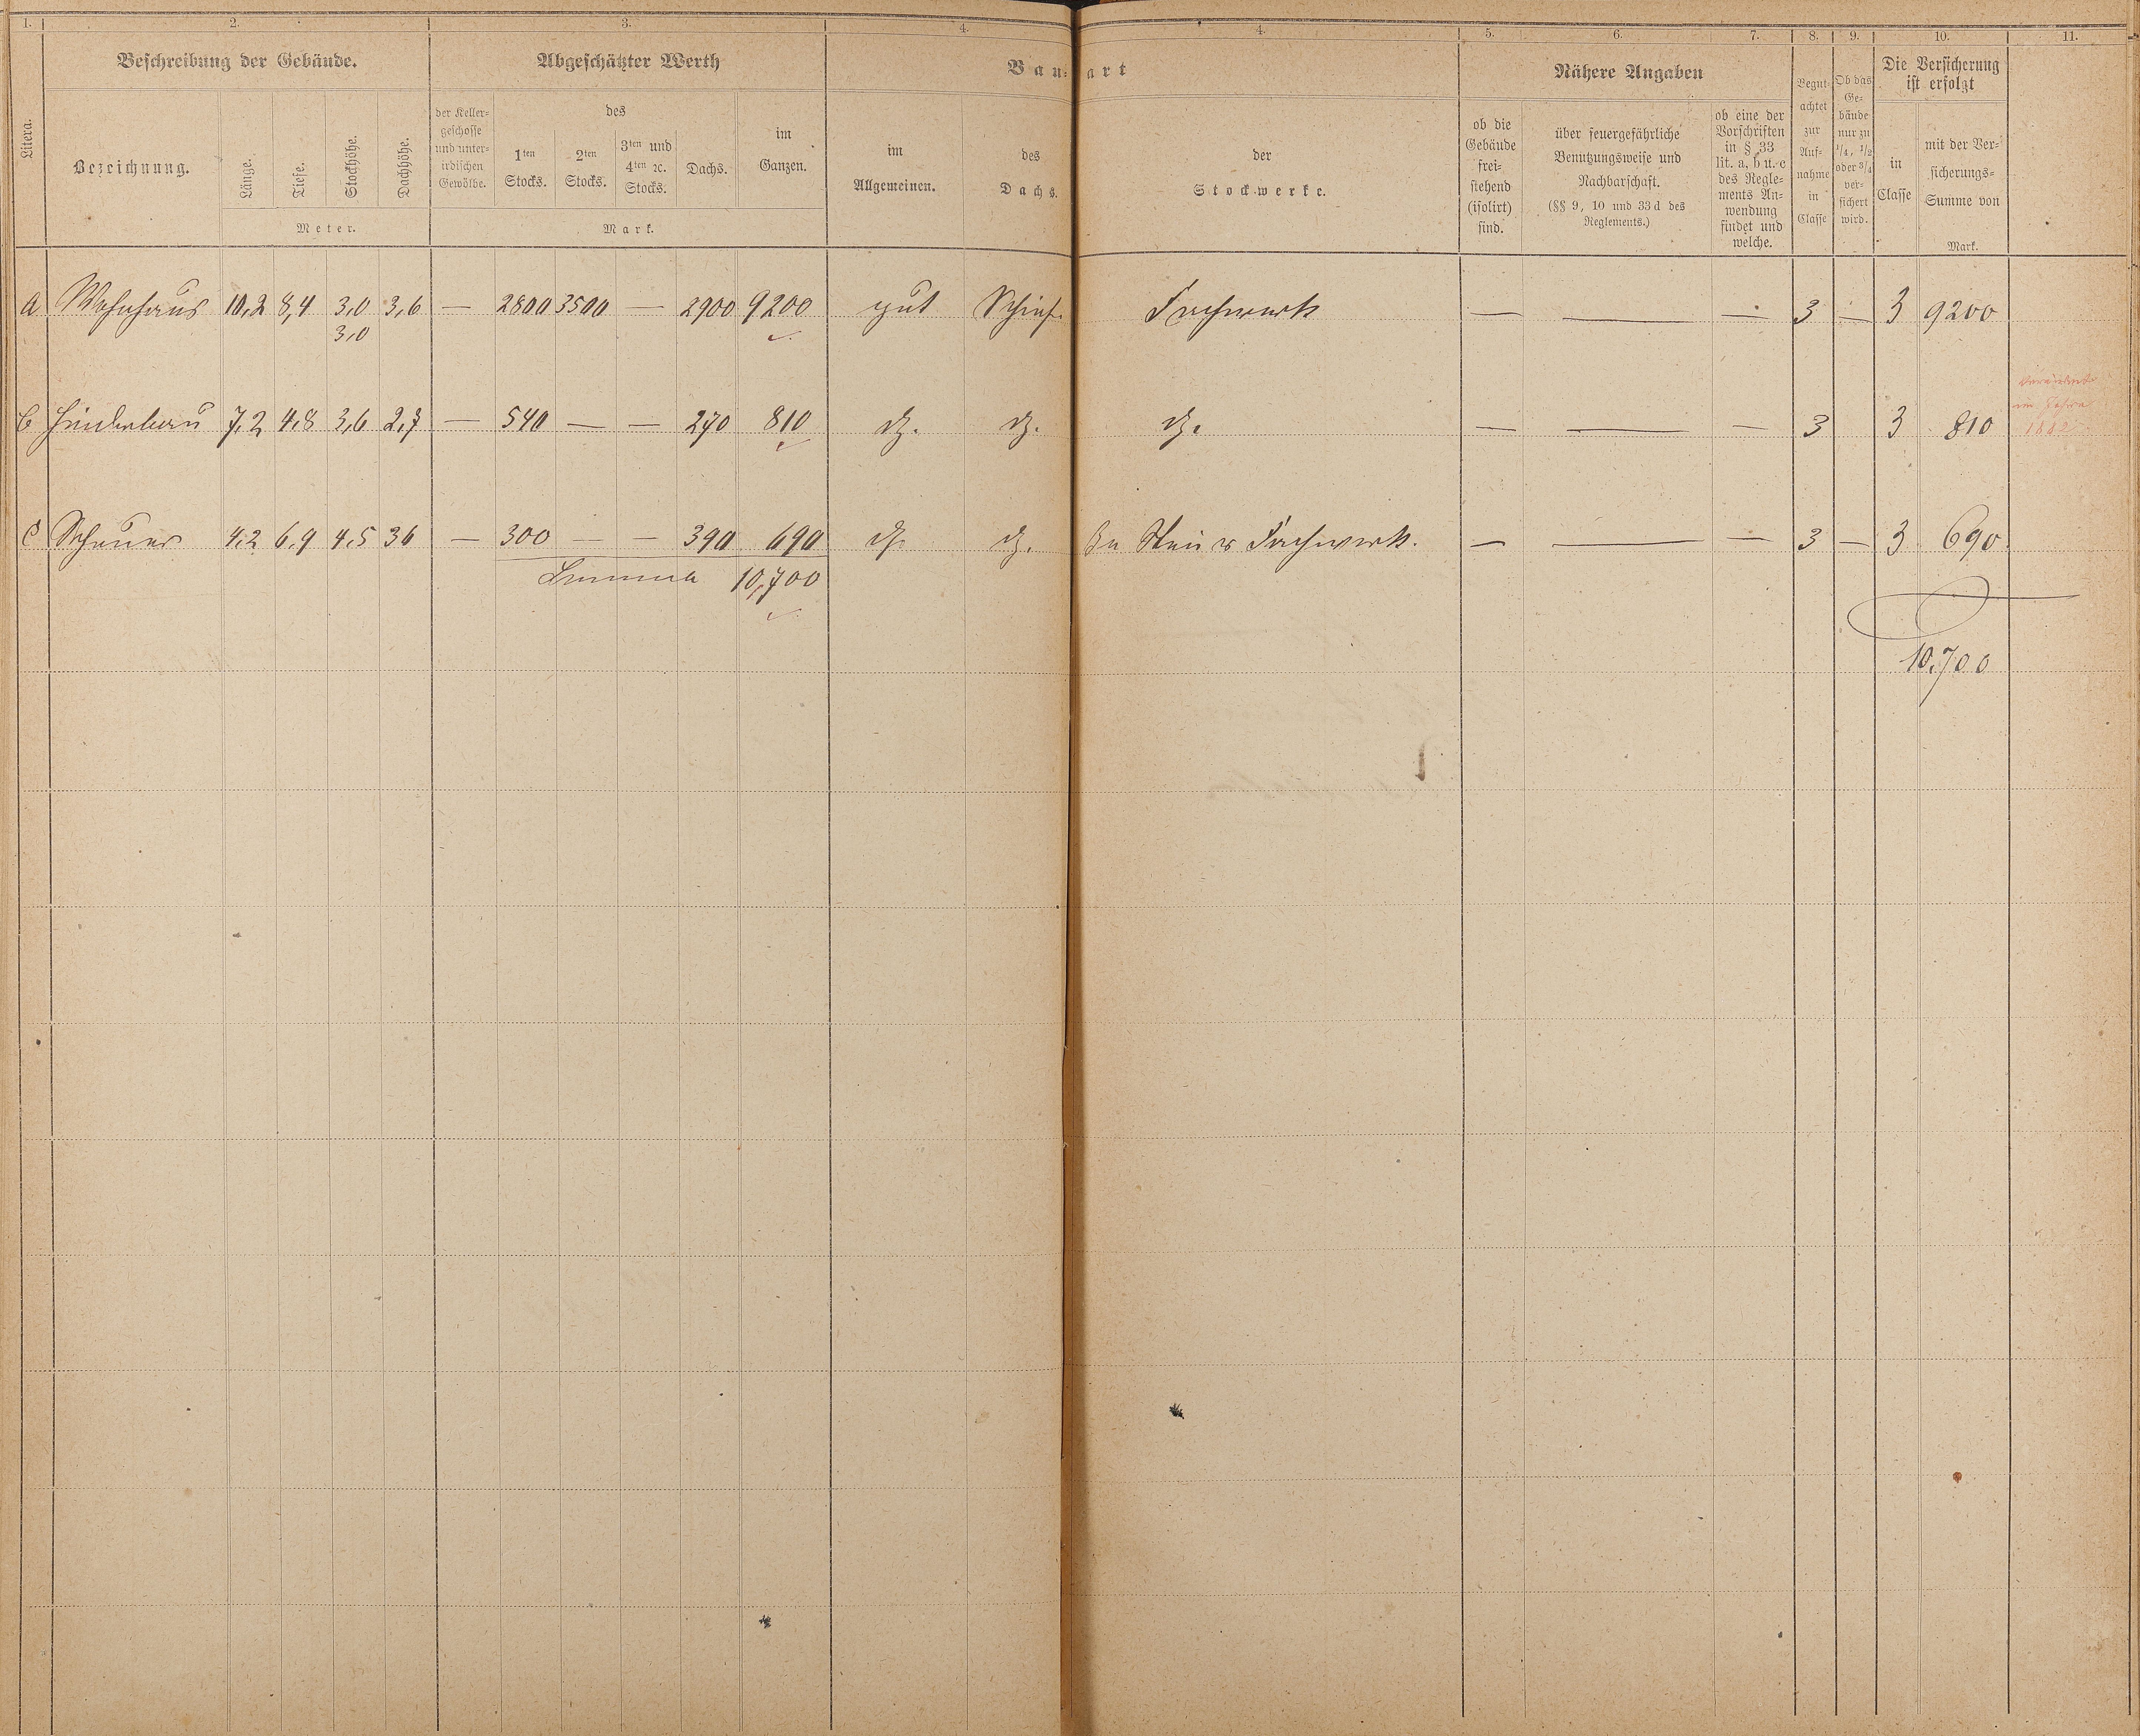 1. 2. 3. 4. 4. 5. 6. 7. 8. 9. 10. 11.
Beschreibung der Gebäude. Abgeschätzter Werth Bau- art Nähere Angaben
Die Versicherung
ist erfolgt
Litera.
Bezeichnung.
Länge. Tiefe. Stockhöhe. Dachhöhe.
Meter.
der Keller-
geschosse
und unter-
irdischen
Gewölbe.
des
1ten
Stocks.
2ten
Stocks.
3ten und
4ten ꝛc.
Stocks.
Dachs.
im
Ganzen.
Mark.
im
Allgemeinen.
des
Dachs.
der
Stockwerke.
ob die
Gebäude
frei-
stehend
(isolirt)
sind.
über feuergefährliche
Benutzungsweise und
Nachbarschaft.
(§§ 9, 10 und 33d des
Reglements.)
ob eine der
Vorschriften
in § 33
lit. a, b u. c
des Regle-
ments An-
wendung
findet und
welche.
Begut-
achtet
zur
Auf-
nahme
in
Classe
Ob das
Ge-
bäude
nur zu
1/4, 1/2
oder 3/4
ver-
sichert
wird.
in
Classe
mit der Ver-
sicherungs-
Summe von
Mark.
a Wohnhaus 10,2 8,4 3,0 3,6 — 2800 3500 — 2900 9200 gut Schief. Fachwerk — — — 3 — 3 9200
3,0
b Hinterbau 7,2 4,8 3,6 2,7 — 540 — — 270 810 dg. dg. dg. — — — 3 3 810
im Jahre
1882
c Scheuer 4,2 6,9 4,5 36 — 300 — — 390 690 dg. dg. Stein u Fachwerk. — — — 3 — 3 690
Summa 10,700
10,700